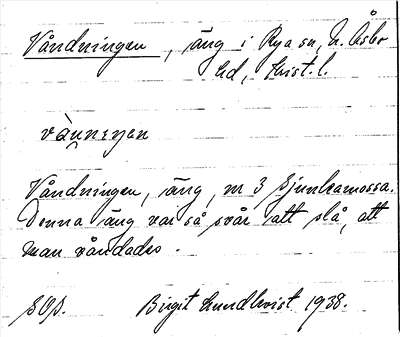 Våndningen, äng i Rya sn, N. Åsbo
hd, Krist. l.
vånneŋen
Våndningen, äng, m 3 Sjunkamossa.
Denna äng var så svår att slå, att
man våndades.
Birgit Lundkvist 1938.